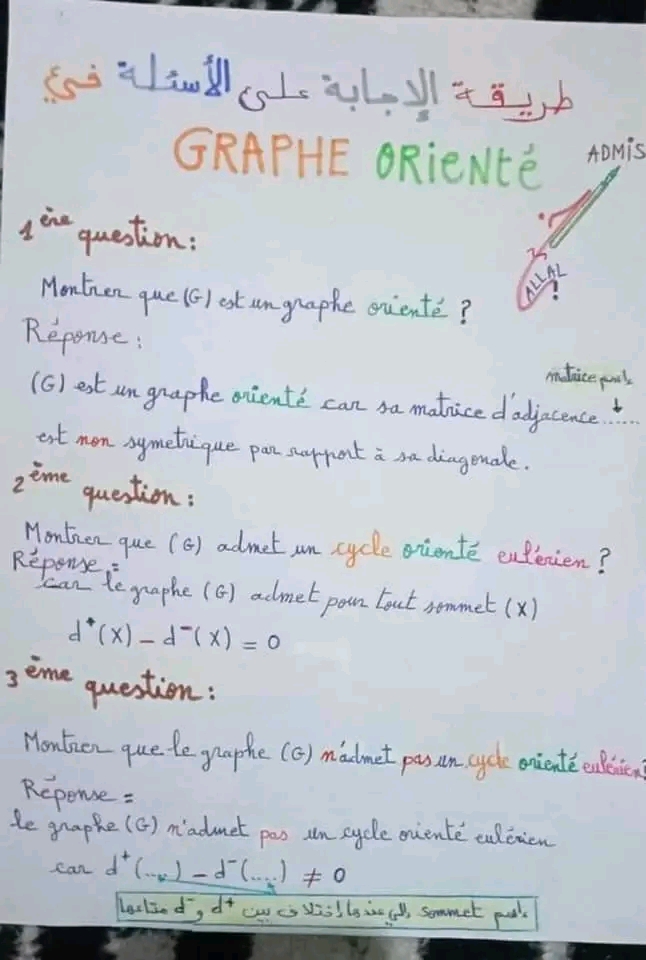 طريقة الإجابة على الأسئلة في
GRAPHE ORienté
ADMIS
ALLAL!
1ère question:
Montrer que (G) est un graphe orienté ?
Réponse :
matrice
(G) est un graphe orienté car sa matrice d'adjacence ......
est non symetrique par rapport à sa diagonale.
2ème question :
Montrer que (G) admet un cycle orienté eulérien ?
Réponse =
car le graphe (G) admet pour tout sommet (X)
d⁺(X) - d⁻(X) = 0
3ème question :
Montrer que le graphe (G) n'admet pas un cycle orienté eulérien?
Réponse =
le graphe (G) n'admet pas un cycle orienté eulérien
car d⁺(....) - d⁻(....) ≠ 0
اسم sommet اللي عندها اختلاف بين d⁺ و d⁻ متاعها